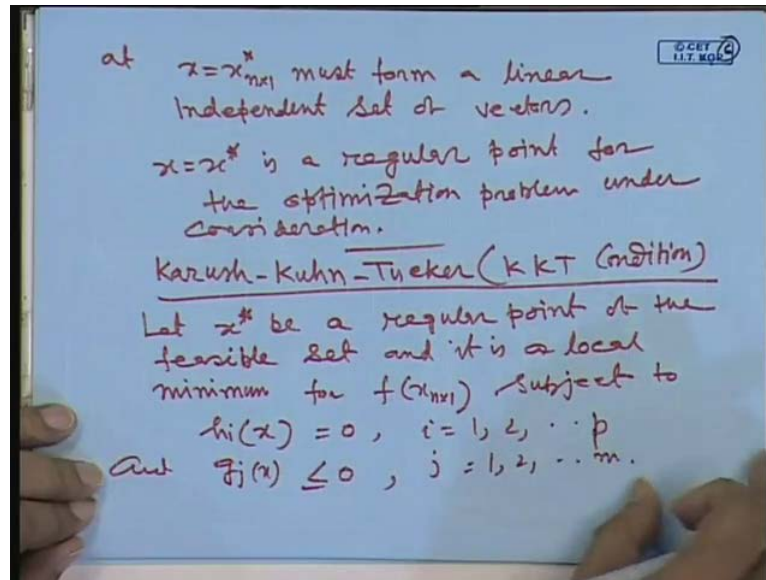 © CET
I.I.T. KGP
6
at x = x*ₙₓ₁ must form a linear
Independent set of vectors.
x = x* is a regular point for
the optimization problem under
consideration.
Karush-Kuhn-Tucker (KKT Condition)
Let x* be a regular point of the
feasible set and it is a local
minimum for f(xₙₓ₁) subject to
hi(x) = 0, i = 1, 2, .. p
And gj(x) ≤ 0, j = 1, 2, .. m.